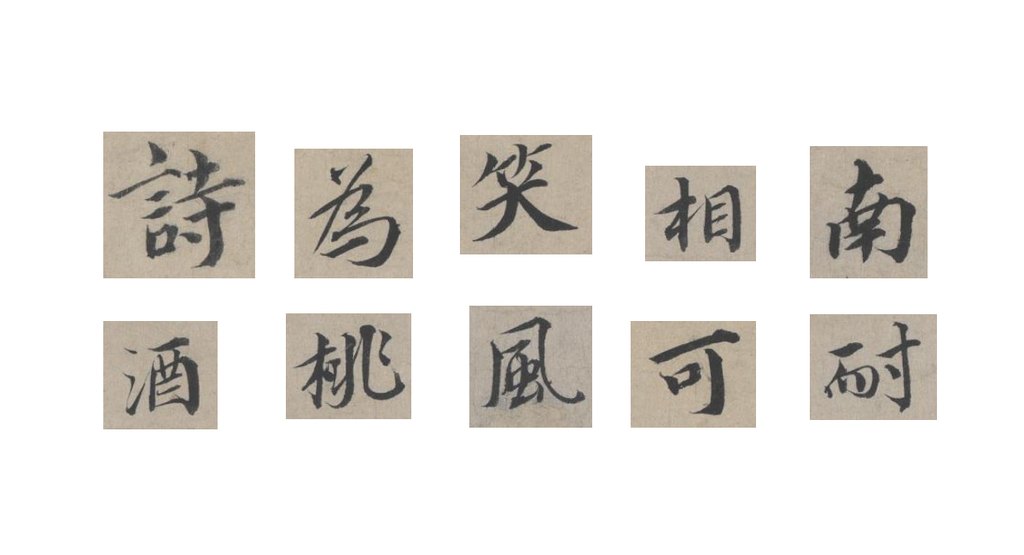 詩為笑相南
酒桃風可耐